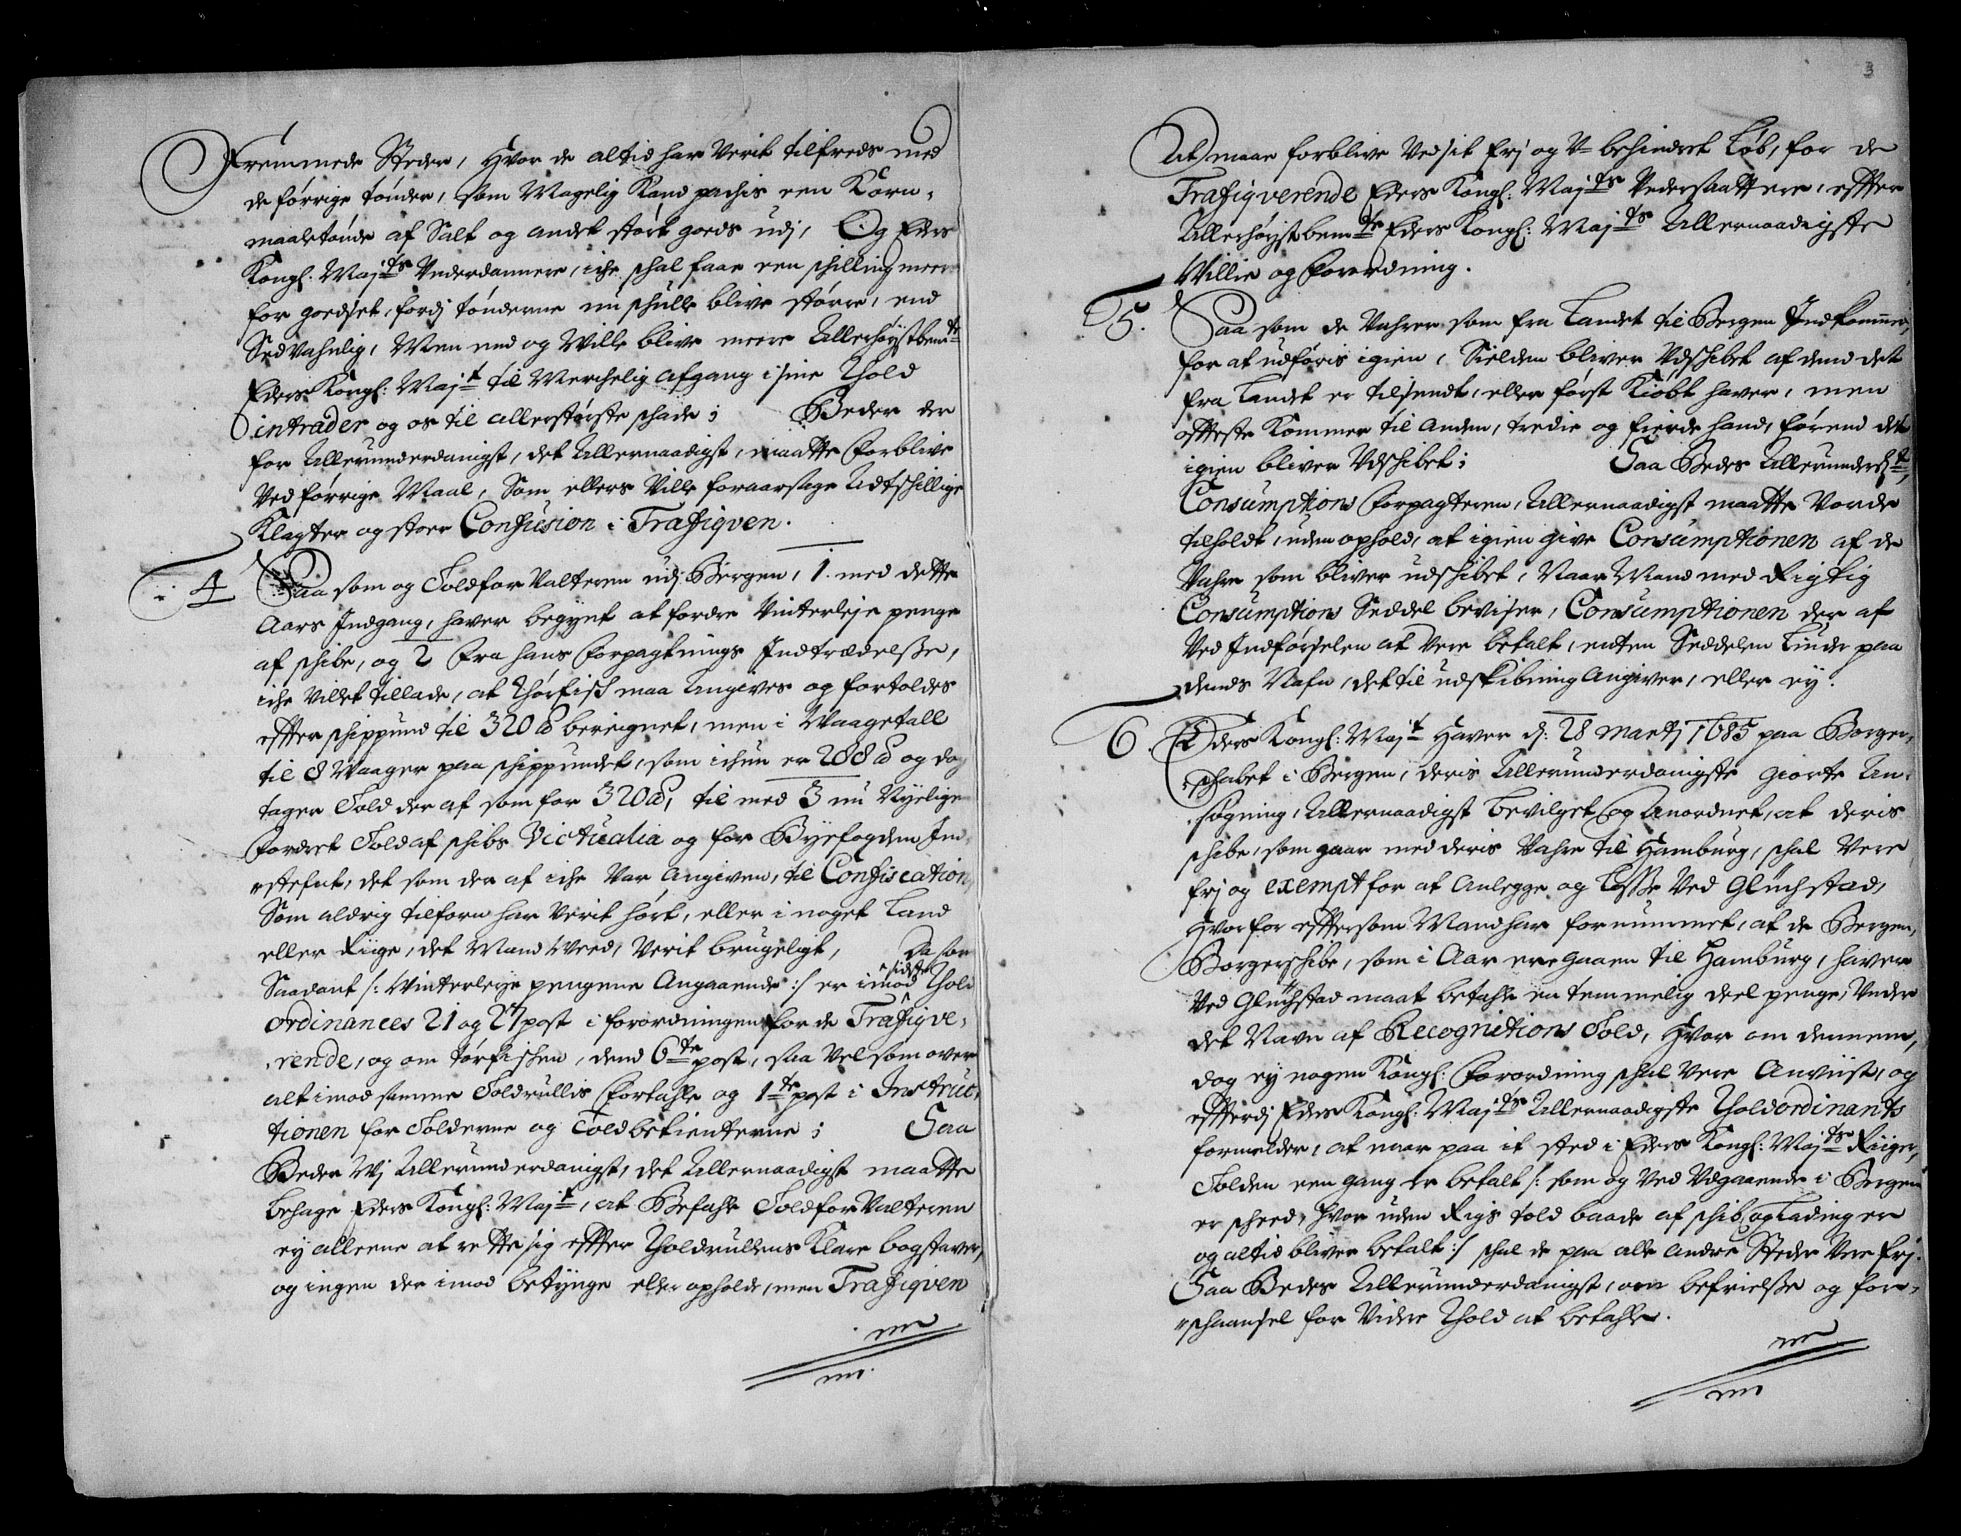 Fremmede Steder, Hvor de altid har Verit tilfreds med
de förrige tönder, som Magelig Kand pachis een Korn-
maaletönde af Salt og andet stört goeds udj, Og Eders
Kongl. Majts Vnderdannere, iche schal faae een schilling meer
for goedset, fordj tönderne nu schulle blive större, end
Sedvahnlig, Men end og Ville blive meere Allerhöystbemte
Eders Kongl: Majt til Merchelig afgang i sine Thold
intrader og os til allerstörste schade; Beder der
for Allerunderdanigst, det Allernaadigst, maatte forblive
Ved förrige Maal, Som ellers Ville foraarsage Udtschillige
Klagter og stoer Confusion i Trafiqven.
4 Saa som og Toldforvalteren udj Bergen, 1. med dette
Aars Indgang, haver begynt at fordre Vinterleje penge
af schibe, og 2 fra hans forpagtnings Indtrædelsse,
iche villet tillade, at Thörfisch maa Angives og fortoldes
effter schippund til 320 ℔ bereignet, men i Waagetall
til 8 Waager paa schippundet, som ichun er 288 ℔ og dog
tager Told der af som for 320 ℔, til med 3 nu Nyelige
fordret Told af schibs Victualia og for Byefogden Ind-
stefnt, det som der af iche Var angiven, til Confiscation,
Som aldrig tilforn har Verit hört, eller i noget Land
eller Riige, det Mand Veed, Verit brugeligt, Da som
Saadant /: Vinterleye pengene Angaaende :/ er imod sidste Thold
ordinances 21 og 27 post i forordningen for de Trafiqve-
rende, og om törfischen, dend 6te post, saa vel som over
alt imod samme Toldrullis fortahle og 1te post i Instruc-
tionen for Tolderne og Toldbetienterne; Saa
Beder Wj Allerunderdanigst, det Allernaadigst maatte
behage Eders Kongl: Majt, at Befahle Toldforvalteren
ey alleene at rette sig effter Tholdrullens Klare bogstaver,
og ingen der imod betynge eller opholde, men Trafiqven
3
At maae forblive Ved sit frj og V-behindret Löb, for de
Trafiqverende Eders Kongl: Majts Vndersaatter, effter
Allerhöystbemte Eders Kongl: Majts Allernaadigste
Villie og forordning.
5. Saa som de Vahrer som fra Landet til Bergen Indkommer,
for at udföris igien, Sielden bliver Udschibet af dend det
fra Landet er tilsendt, eller först Kiöbt haver, men
offteste Kommer til anden, tredie og fierde hand, förend det
igien bliver Udschibet; Saa Bedes Allerunderdt,
Consumptions forpagteren, Allernaadigst maatte Vorde
tilholdt, uden ophold, at igien give Consumptionen af de
Vahre som bliver udschibet, Naar Mand med Rigtig
Consumptions Seddel beviser, Consumptionen der af
Ved Indförselen at Vere betalt, enten Seddelen Liuder paa
dends Nafn, det til udskibning angiver, eller ey.
6. Eders Kongl: Majt Haver d: 28 Martj 1685 paa Borger-
schabet i Bergen, deris Allerunderdanigste giorte An-
sögning, Allernaadigst bevilget og Anordnet, at deris
schibe, som gaar med deris Vahre til Hamburg, schal Vere
frj og exempt for at anlegge og Losse Ved Glüchstad,
Hvorfor effter som Mand har fornummet, at de Bergen,
Borgerschibe, som i Aar ere gaaen til Hamburg, haver
Ved Glüchstad maat betahle en temmelig deel penge, Under
det Navn af Recognitions Told, Hvor om dennem,
dog ey nogen Kongl: forordning schal vere Anviist, og
effterdj Eders Kongl: Majts Allernaadigste Tholdordinants
formelder, at naar paa it sted i Eders Kongl: Majts Riiger,
Tolden een gang er betalt /: som og Ved Udgaaende i Bergen
er scheed, Hvor uden Rigs told baade af schib og Lading er
og altid bliver betalt :/ schal de paa alle andre Steder Vere frj.
Saa Bedes Allerunderdanigst, om befrielsse og for-
schaansel for Videre Thold at betahle.